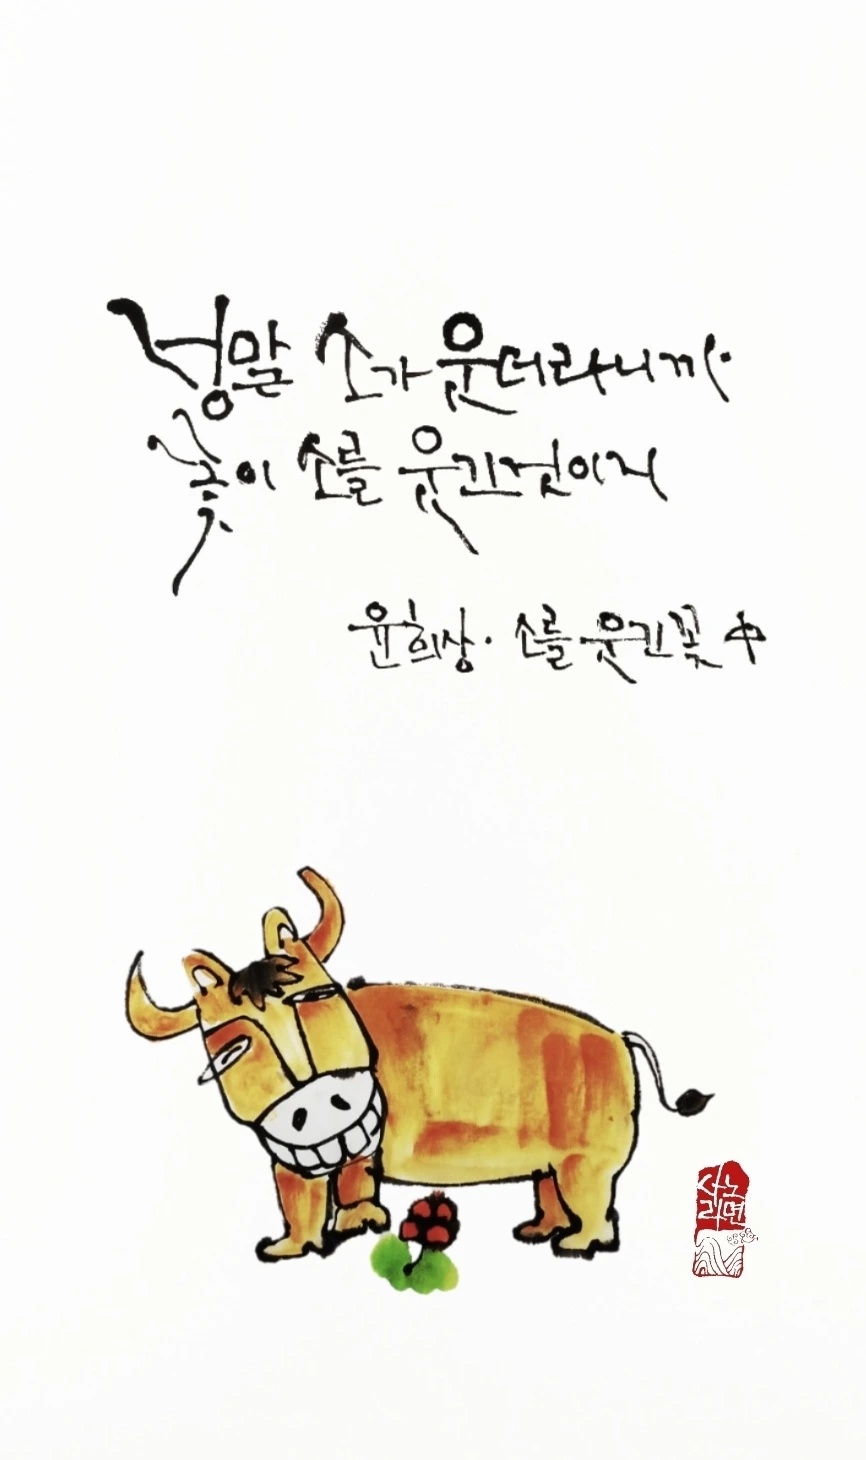 정말 소가 웃더라니까.
꽃이 소를 웃긴것이지
윤희상 · 소를 웃긴 꽃 中